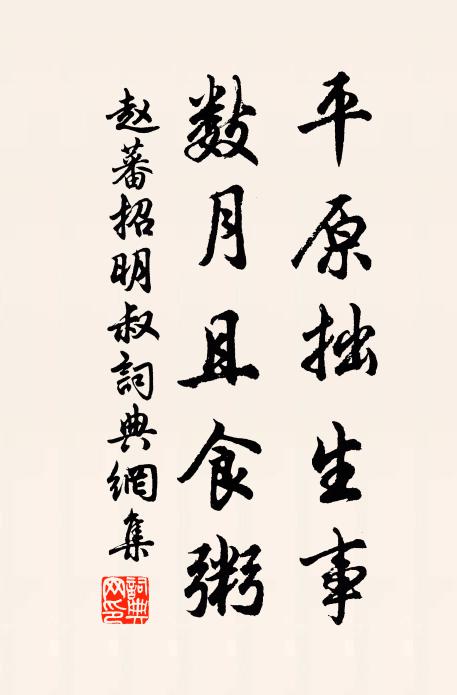 平原拙生事
数月且食粥
赵蕃招明叔詞典網集
詞典网印